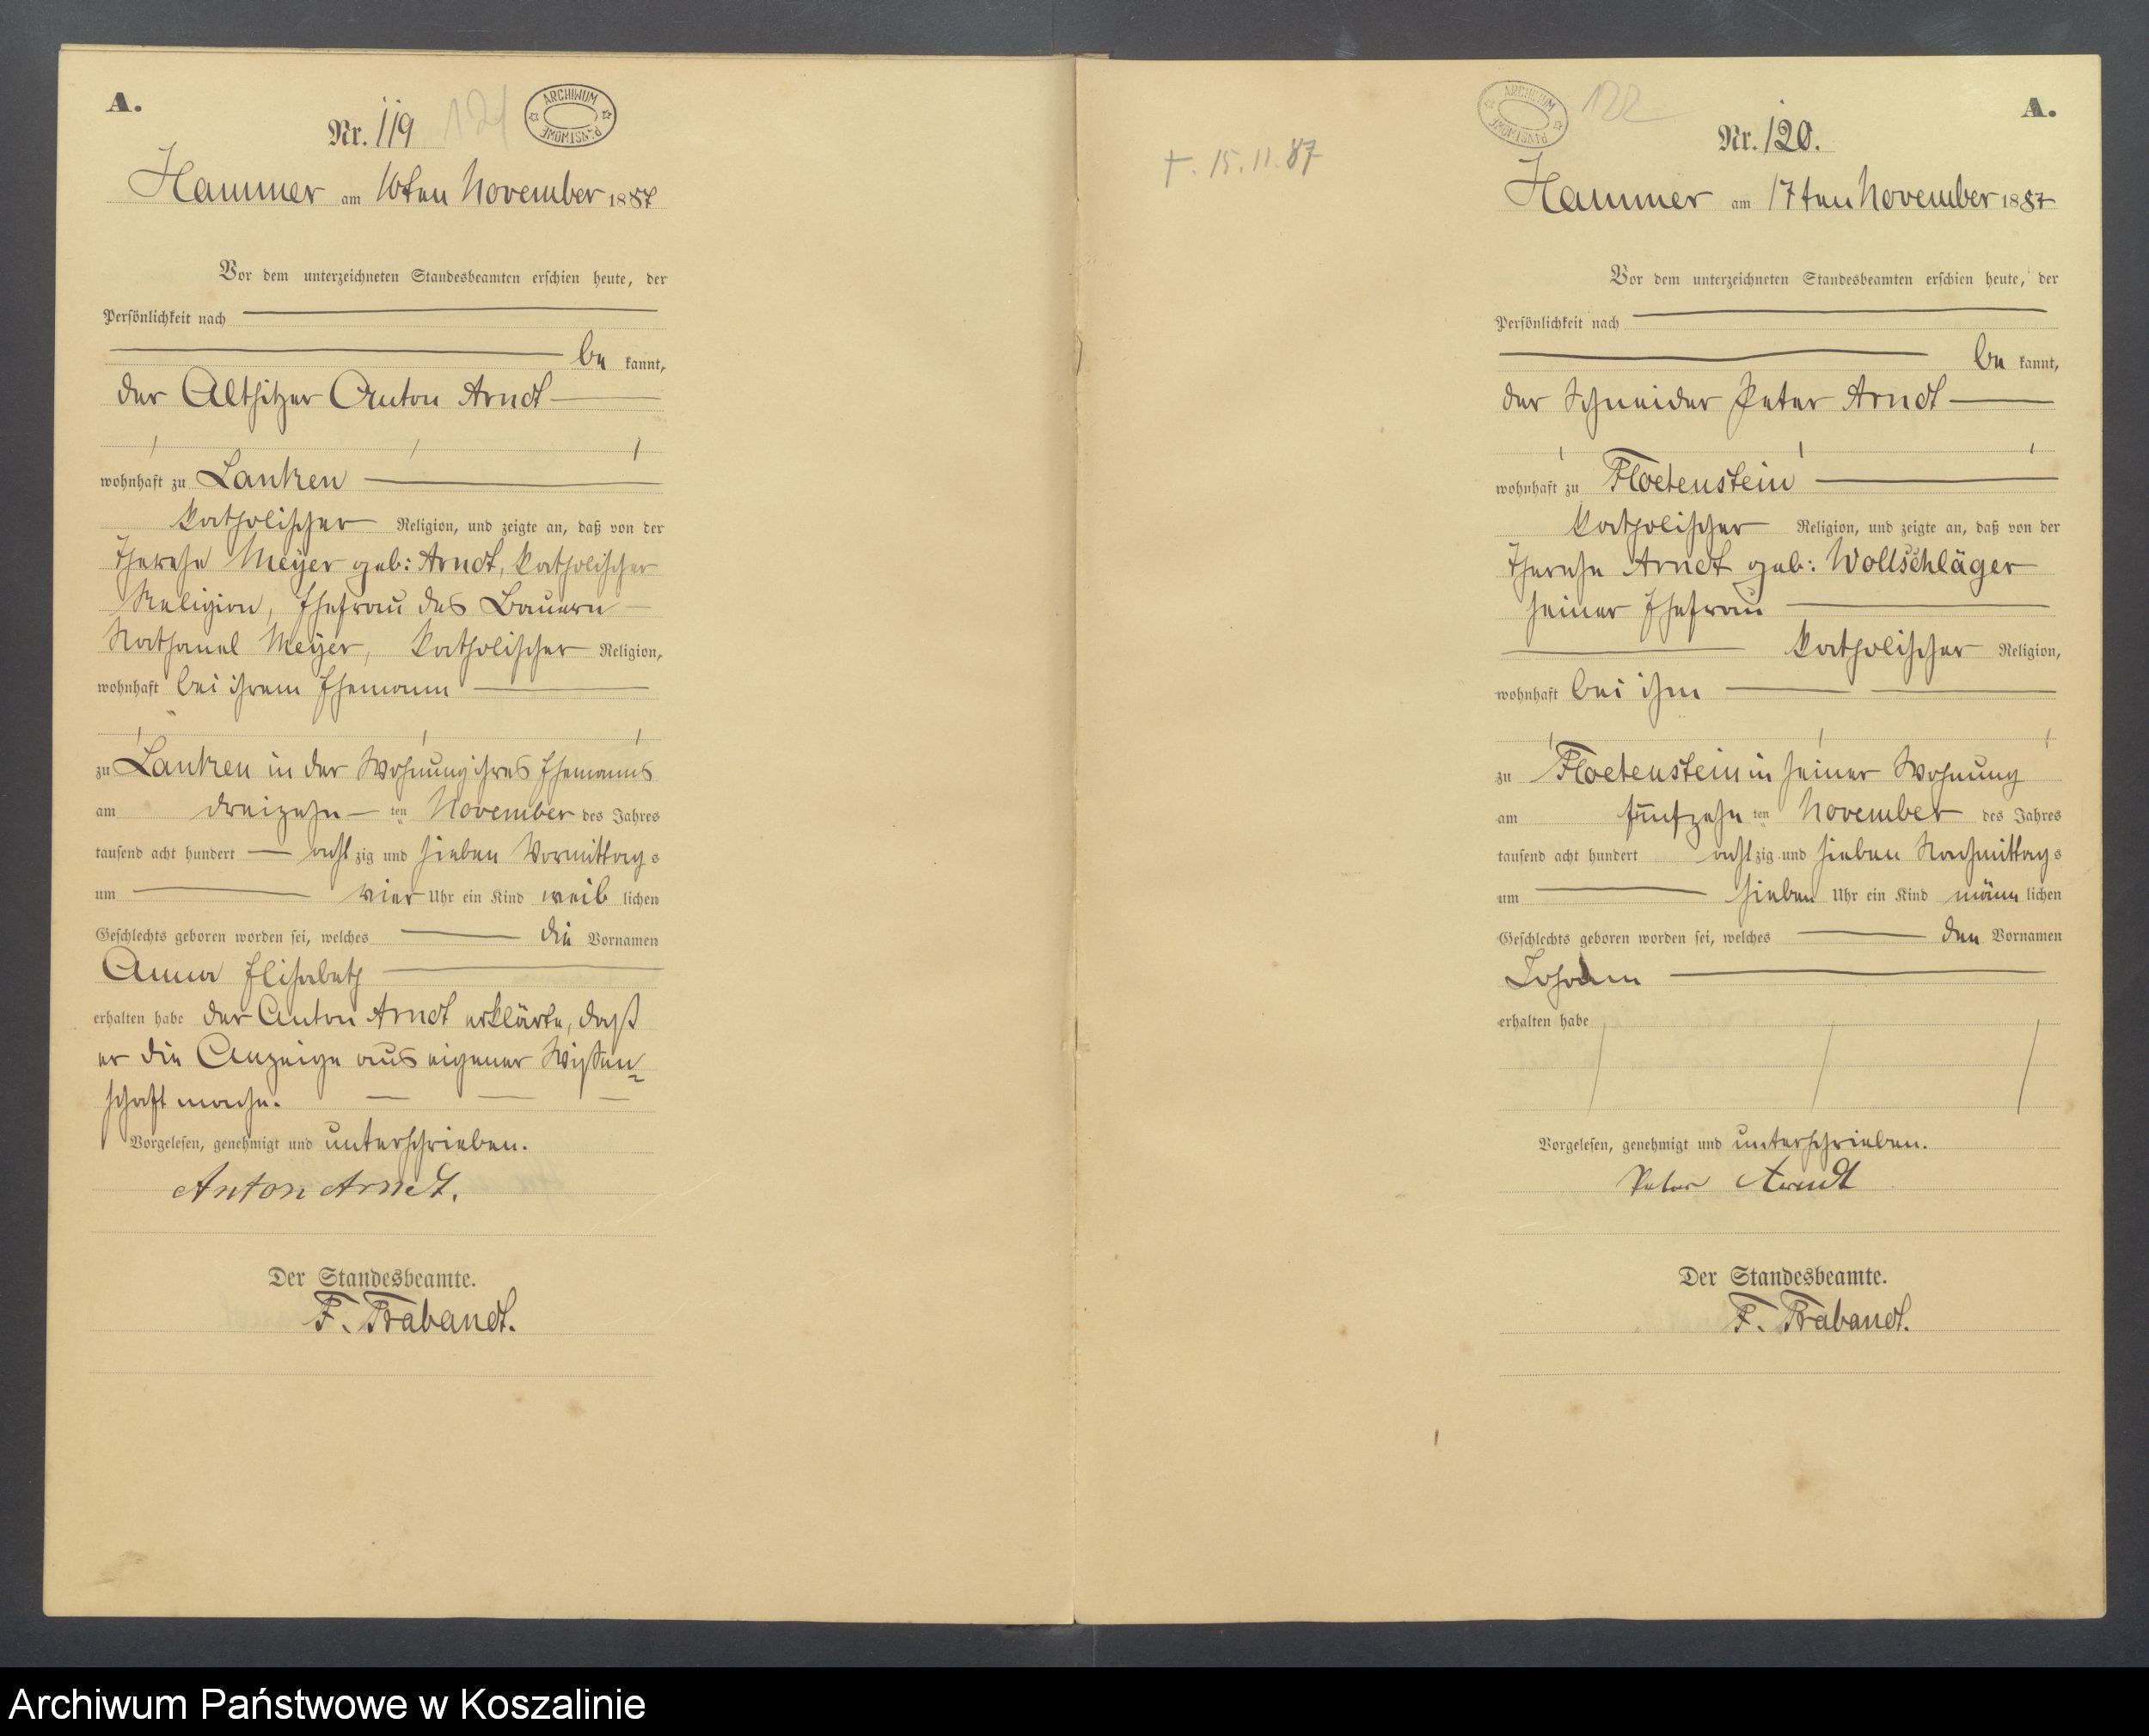 A.
Nr. 119
121
ARCHIWUM PAŃSTWOWE
Hammer am 16ten November 1887
Vor dem unterzeichneten Standesbeamten erschien heute, der
Persönlichkeit nach
be kannt,
der Altsitzer Anton Arndt
wohnhaft zu Lanken
katholischer Religion, und zeigte an, daß von der
Therese Meyer geb: Arndt, katholischer
Religion, Ehefrau des Bauern
Nathanel Meyer, katholischer Religion,
wohnhaft bei ihrem Ehemann
zu Lanken in der Wohnung ihres Ehemanns
am dreizehn ten November des Jahres
tausend acht hundert acht zig und sieben Vormittags
um vier Uhr ein Kind weib lichen
Geschlechts geboren worden sei, welches die Vornamen
Anna Elisabeth
erhalten habe der Anton Arndt erklärte, daß
er die Anzeige aus eigener Wißen=
schaft mache.
Vorgelesen, genehmigt und unterschrieben.
Anton Arndt.
Der Standesbeamte.
F. Trabandt.
+. 15.11.87
ARCHIWUM PAŃSTWOWE
122
A.
Nr. 120.
Hammer am 17ten November 1887
Vor dem unterzeichneten Standesbeamten erschien heute, der
Persönlichkeit nach
be kannt,
der Schneider Peter Arndt
wohnhaft zu Floetenstein
katholischer Religion, und zeigte an, daß von der
Therese Arndt geb: Wollschläger
seiner Ehefrau
katholischer Religion,
wohnhaft bei ihm
zu Floetenstein in seiner Wohnung
am fünfzehn ten November des Jahres
tausend acht hundert acht zig und sieben Nachmittags
um sieben Uhr ein Kind männ lichen
Geschlechts geboren worden sei, welches den Vornamen
Johann
erhalten habe
Vorgelesen, genehmigt und unterschrieben.
Peter Arndt
Der Standesbeamte.
F. Trabandt.
Archiwum Państwowe w Koszalinie